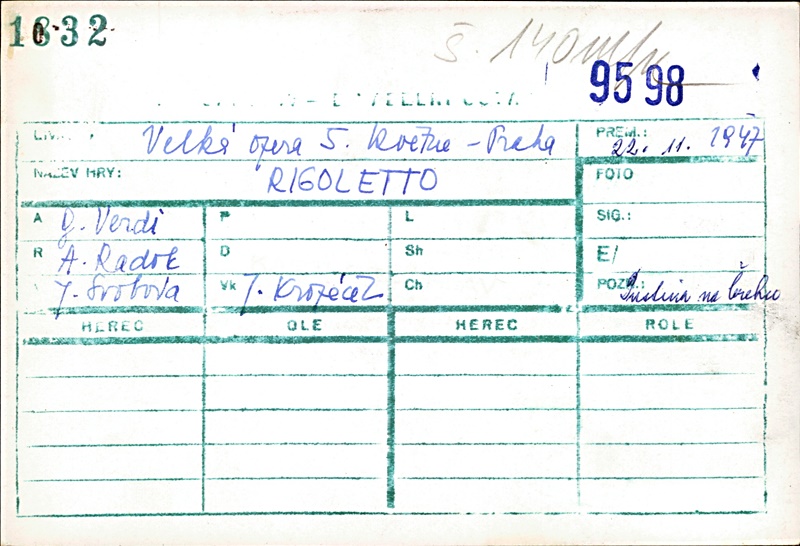 1632
Š. 140
9598
Velká opera 5. května - Praha
PREM.: 22. 11. 1947
NÁZEV HRY: RIGOLETTO
FOTO
A G. Verdi P L SIG.:
R A. Radok D Sh E/
J. Svoboda Vk Ch POZN.: na
HEREC ROLE HEREC ROLE